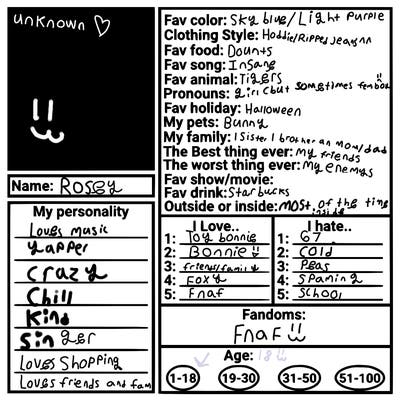 unknown ♡
Name: Rosey
My personality
Loves music
Yapper
Crazy
Chill
Kind
Singer
Loves Shopping
Loves friends and fam
Fav color: Sky blue/Light purple
Clothing Style: Hoddie/Ripped jeans
Fav food: Dounts
Fav song: Insane
Fav animal: Tigers
Pronouns: girl (but sometimes femboy
Fav holiday: Halloween
My pets: Bunny
My family: 1 Sister 1 brother an mom/dad
The Best thing ever: my friends
The worst thing ever: my enemys
Fav show/movie:
Fav drink: Starbucks
Outside or inside: most of the time inside
I Love..
1: Toy bonnie
2: Bonnie
3: friends/family
4: Foxy
5: Fnaf
I hate..
1: 67
2: cold
3: Peas
4: Spaming
5: School
Fandoms:
Fnaf
Age: 18
1-18 19-30 31-50 51-100